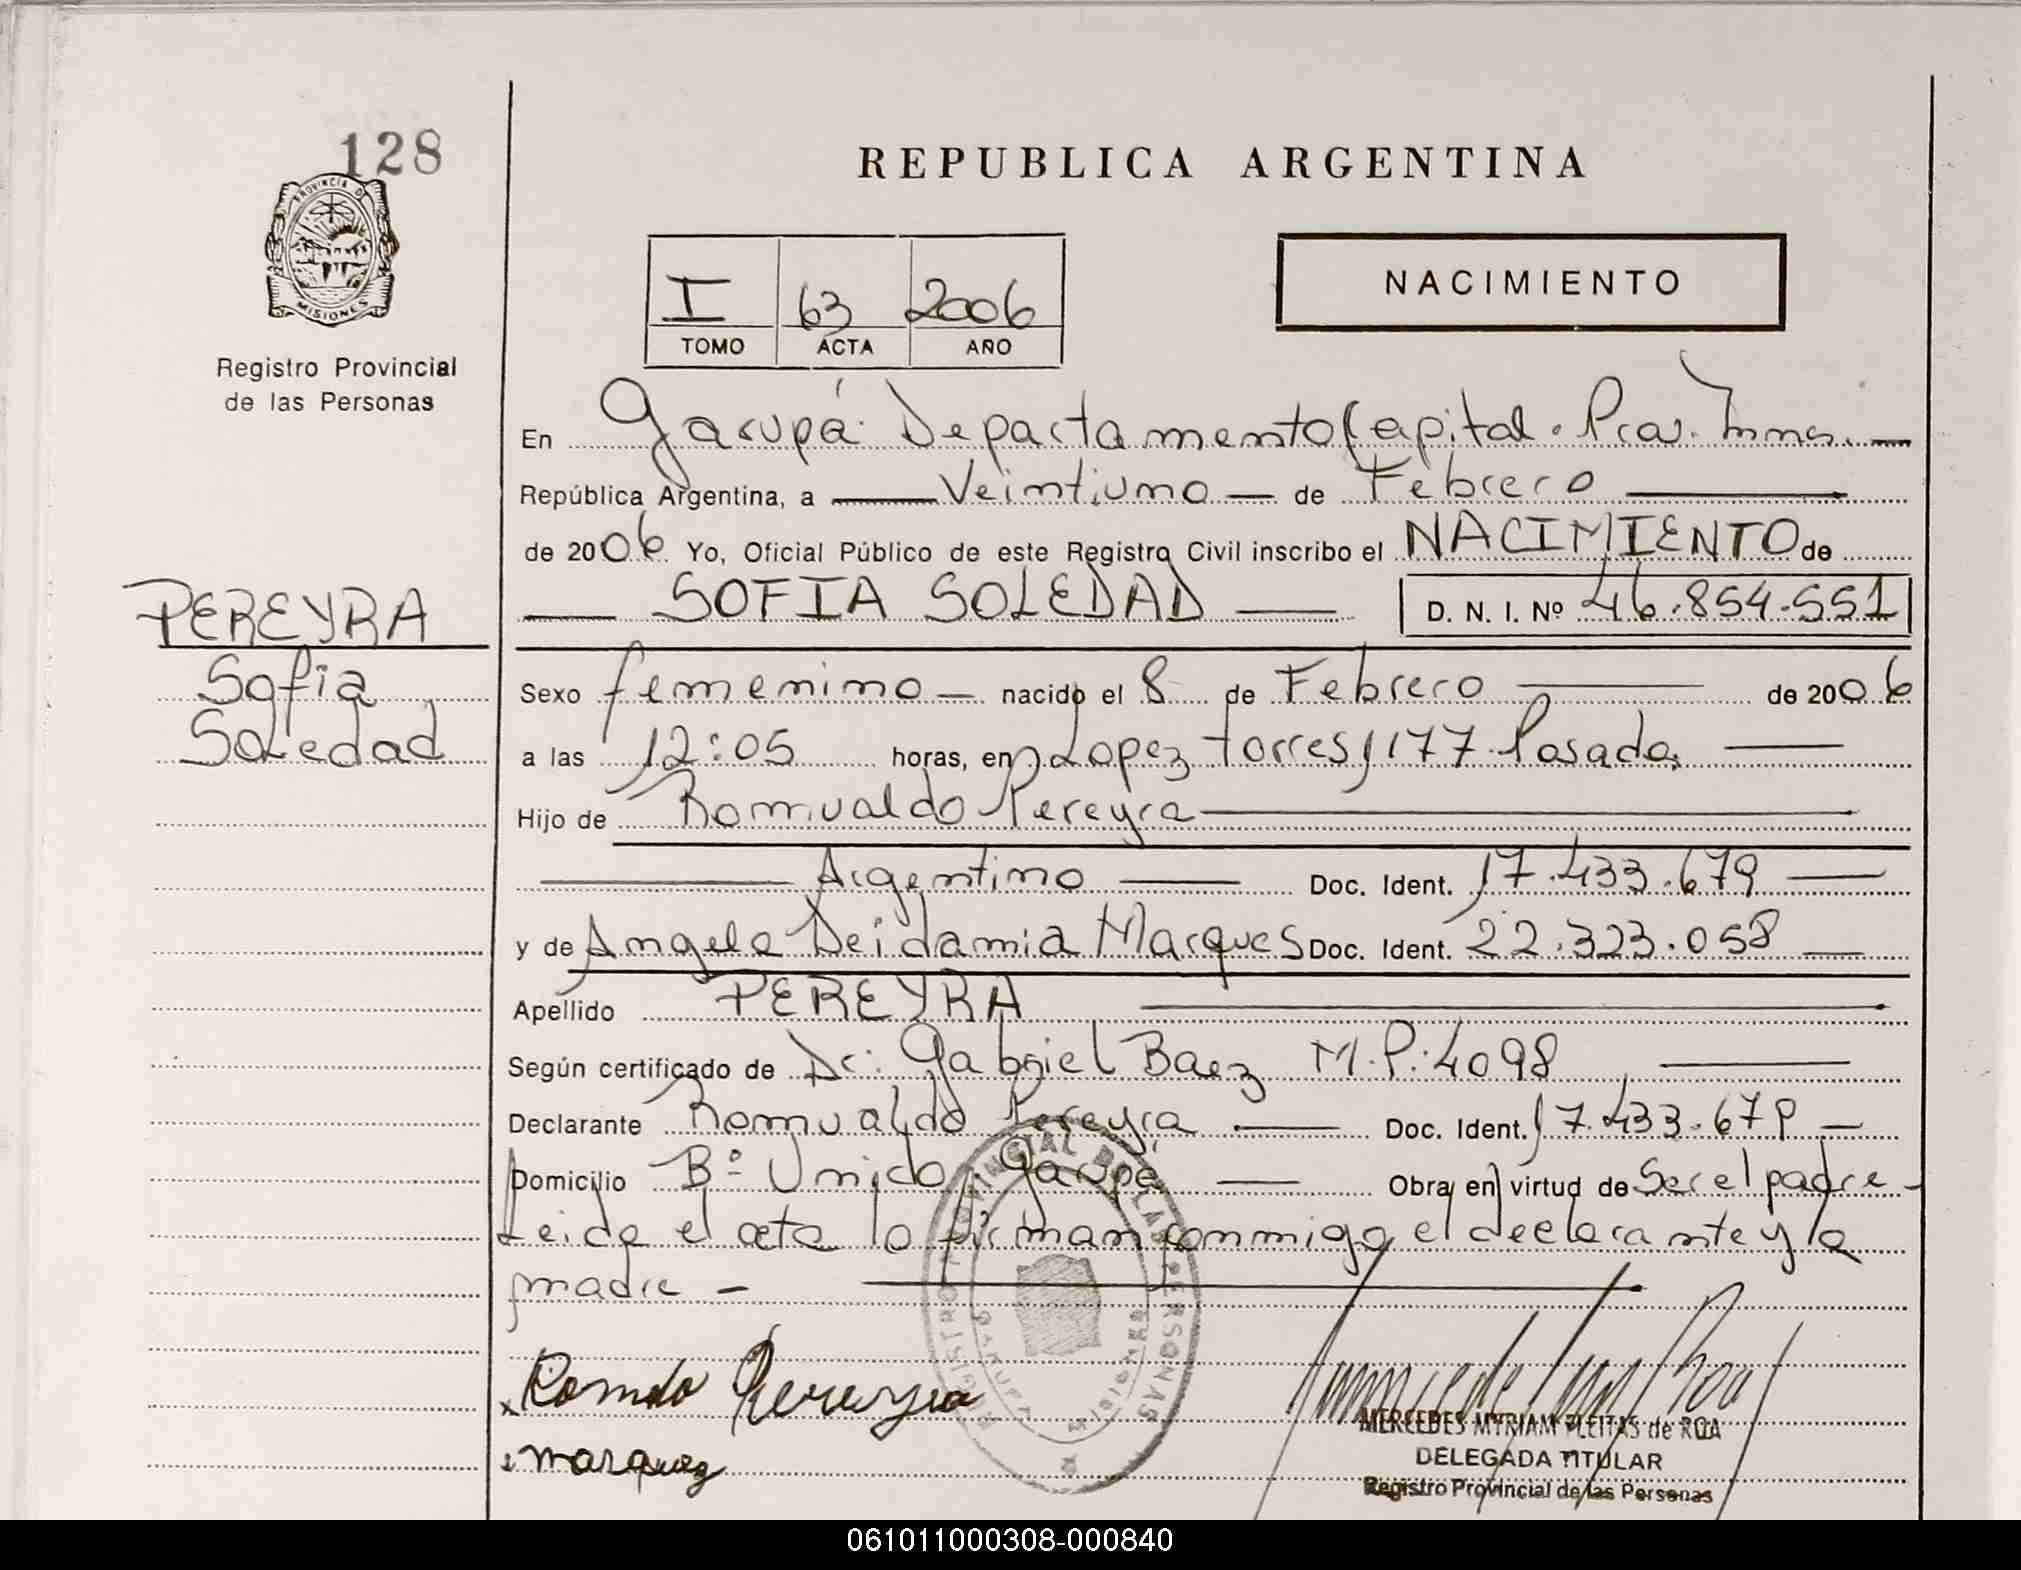 128
PROVINCIA DE
MISIONES
Registro Provincial
de las Personas
REPUBLICA ARGENTINA
I 63 2006
TOMO ACTA AÑO
NACIMIENTO
En Garupá Departamento Capital. Pcia. Mnes.
República Argentina, a Veintiuno de Febrero
de 2006 Yo, Oficial Público de este Registro Civil inscribo el NACIMIENTO de
SOFIA SOLEDAD D. N. I. Nº 46.854.551
PEREYRA
Sofia
Soledad
Sexo femenino nacido el 8 de Febrero de 2006
a las 12:05 horas, en Lopez Torres 1177 Posadas
Hijo de Romualdo Pereyra
Argentino Doc. Ident. 17.433.679
y de Angela Deidamia Marques Doc. Ident. 22.323.058
Apellido PEREYRA
Según certificado de Dr: Gabriel Baez M.P.: 4098
Declarante Romualdo Pereyra Doc. Ident. 17.433.679
Domicilio Bº Unido Garupá Obra en virtud de Ser el padre
Leida el acta la firman conmigo el declarante y la
madre
Romdo Pereyra
marquez
REGISTRO PROVINCIAL DE LAS PERSONAS
GARUPA
MISIONES
MERCEDES MYRIAM FLEITAS de ROA
DELEGADA TITULAR
Registro Provincial de las Personas
061011000308-000840